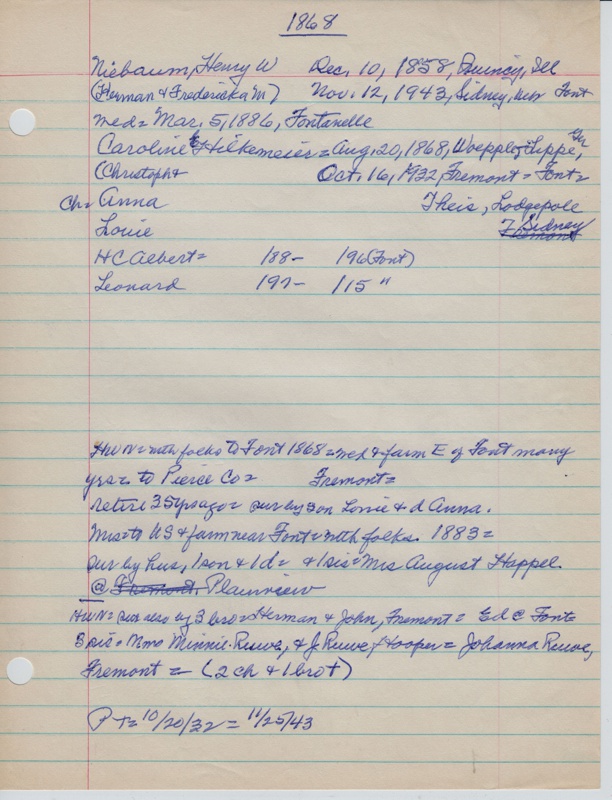 1868
Niebaum, Henry W Dec. 10, 1858, Quincy, Ill
(Herman & Fredericka M) Nov. 12, 1943, Sidney, Font
med = Mar. 5, 1886, Fontanelle
Caroline Hilkemeier = Aug. 20, 1868, Woepple = Lippe, Ger
(Christoph & Oct. 16, 1932, Fremont = Font =
Ch = Anna Theis, Lodgepole
Louie F Sidney
HC Albert = 188- 196 (Font)
Leonard 197- 115 "
HWN = with folks to Font 1868 = med & farm E of Font many
yrs = to Pierce Co = Fremont =
retire 35 yrs ago = sur by son Louie & d Anna.
Mrs = to US & farm near Font = with folks. 1883 =
sur by hus, 1 son & 1 d = & 1 sis = Mrs August Happel.
@ Fremont, Plainview
HWN = sur also by 3 bro = Herman & John, Fremont = Ed @ Font =
3 sis = Mmes Minnie Ruwe, & J Ruwe, Hooper = Johanna Ruwe,
Fremont = (2 ch & 1 brot)
P T = 10/20/32 = 11/25/43